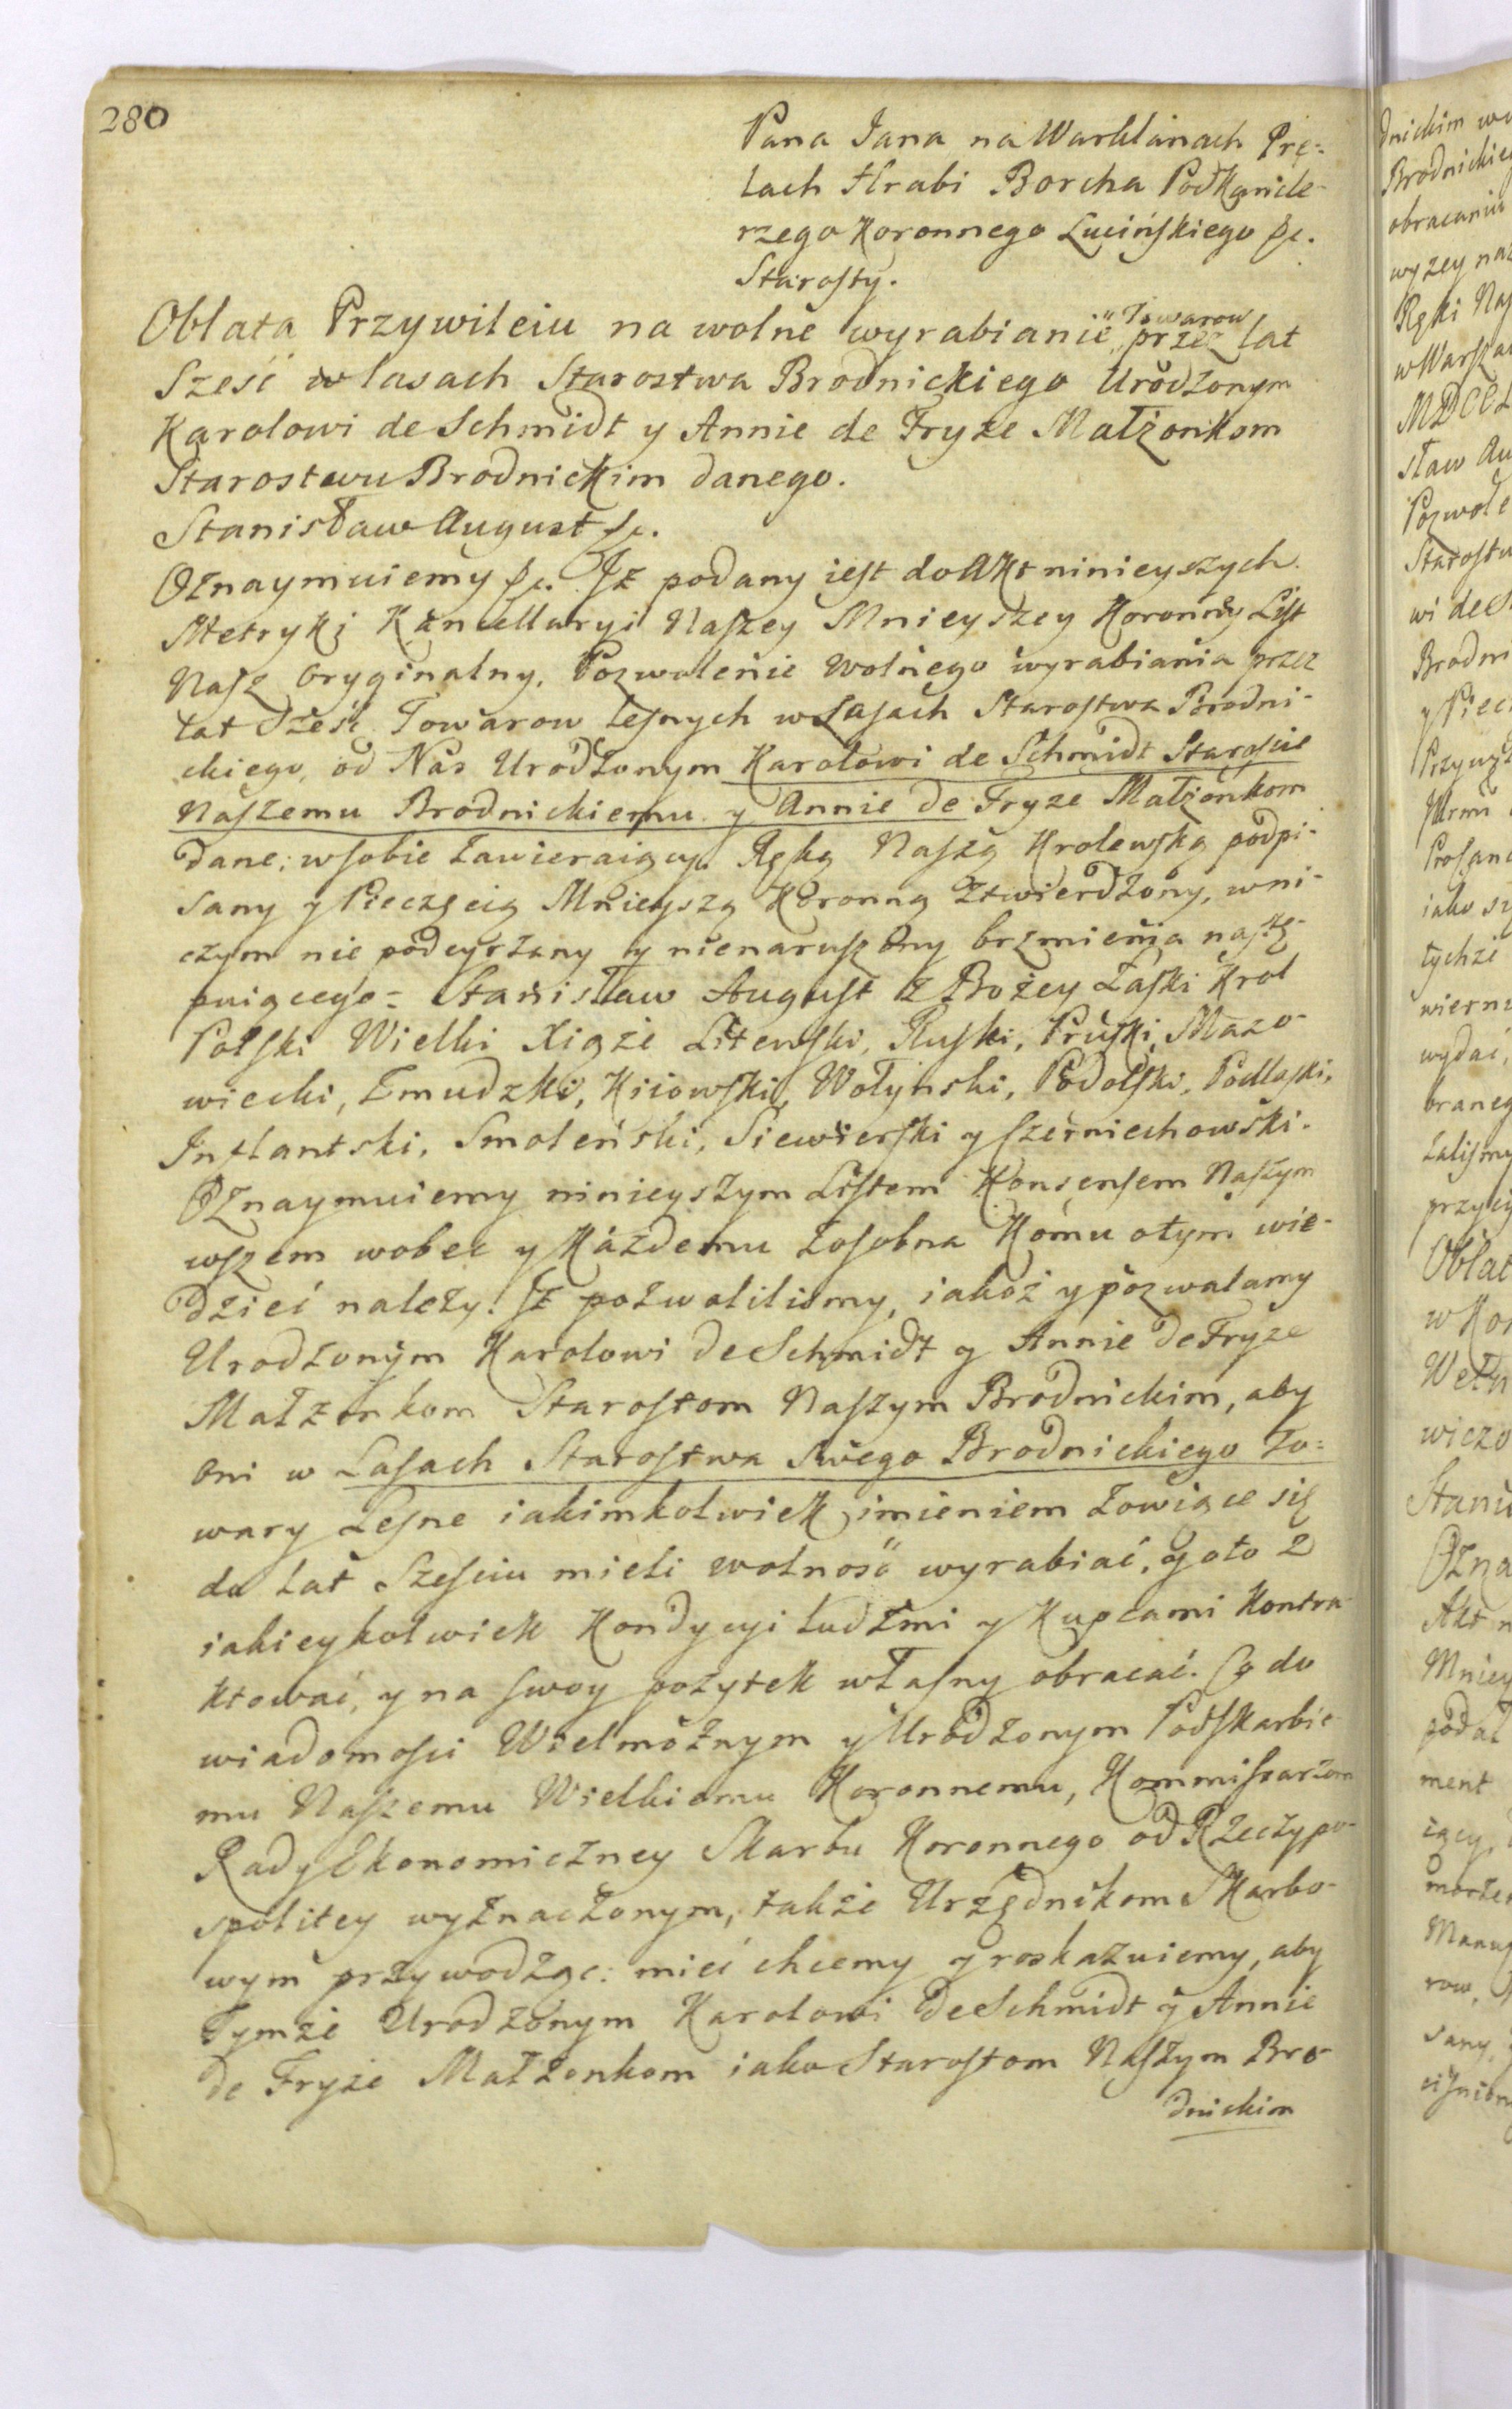 280
Pana Jana na Warklanach Pre-
lach Hrabi Borcha Podkancle-
rzego Koronnego Lucińskiego &c.
Starosty.
Oblata Przywileiu na wolne wyrabianie Towarow przez lat
Sześć w lasach Starostwa Brodnickiego Urodzonym
Karolowi de Schmidt y Annie de Fryze Małżonkom
Starostwu Brodnickim danego.
Stanisław August &c.
Oznaymuiemy &c. Iż podany iest do Akt ninieyszych
Metryki Kancellaryi Naszey Mnieyszey Koronney List
Nasz Oryginalny, Pozwolenie Wolnego wyrabiania przez
lat Sześć Towarow leśnych w Lasach Starostwa Brodni-
ckiego, od Nas Urodzonym Karolowi de Schmidt Staroście
Naszemu Brodnickiemu y Annie de Fryze Małżonkom
dane; w sobie zawieraiący. Ręką Naszą Krolewską podpi-
sany y Pieczęcią Mnieyszą Koronną Ztwierdzony, w ni-
czym nie podeyrzany y nienaruszony brzmienia nastę-
puiącego = Stanisław August z Bożey Łaski Krol
Polski Wielki Xiąże Litewski, Ruski, Pruski, Mazo-
wiecki, Zmudzki, Kiiowski, Wołynski, Podolski, Podlaski,
Inflantski, Smoleński, Siewierski y Czerniechowski.
Oznaymuiemy ninieyszym Listem Konsensem Naszym
wszem wobec y Każdemu zosobna Komu o tym wie-
dzieć należy! Iż pozwoliliśmy, iakoż y pozwalamy
Urodzonym Karolowi de Schmidt y Annie de Fryze
Małżonkom Starostom Naszym Brodnickim, aby
Oni w Lasach Starostwa Swego Brodnickiego To=
wary Leśne iakimkolwiek imieniem zowiące się
do lat Sześciu mieli wolność wyrabiać, y oto z
iakieykolwiek Kondycyi ludźmi y Kupcami Kontra-
ktować, y na swoy pożytek własny obracać. Co do
wiadomości Wielmożnym y Urodzonym Podskarbie-
mu Naszemu Wielkiemu Koronnemu, Kommissarzom
Rady Ekonomiczney Skarbu Koronnego od Rzeczypo-
spolitey wyznaczonym, także Urzędnikom Skarbo-
wym przywodząc: mieć chcemy y roskazuiemy, aby
Tymże Urodzonym Karolowi de Schmidt y Annie
de Fryze Małżonkom iako Starostom Naszym Bro-
dnickim
dnickim
Brodnickie
obracaniu
wyżey
Ręki Na
w Warsza
MDCCL
sław Au
Pozwole
Starostw
wi de S
Brodni
y Piecz
iako
tychże
wierni
wydać,
braney
Oblat
w Kor
wiczo
Stani
Ozna
Akt n
Mniey
podał
ment
iący,
row,
sany,